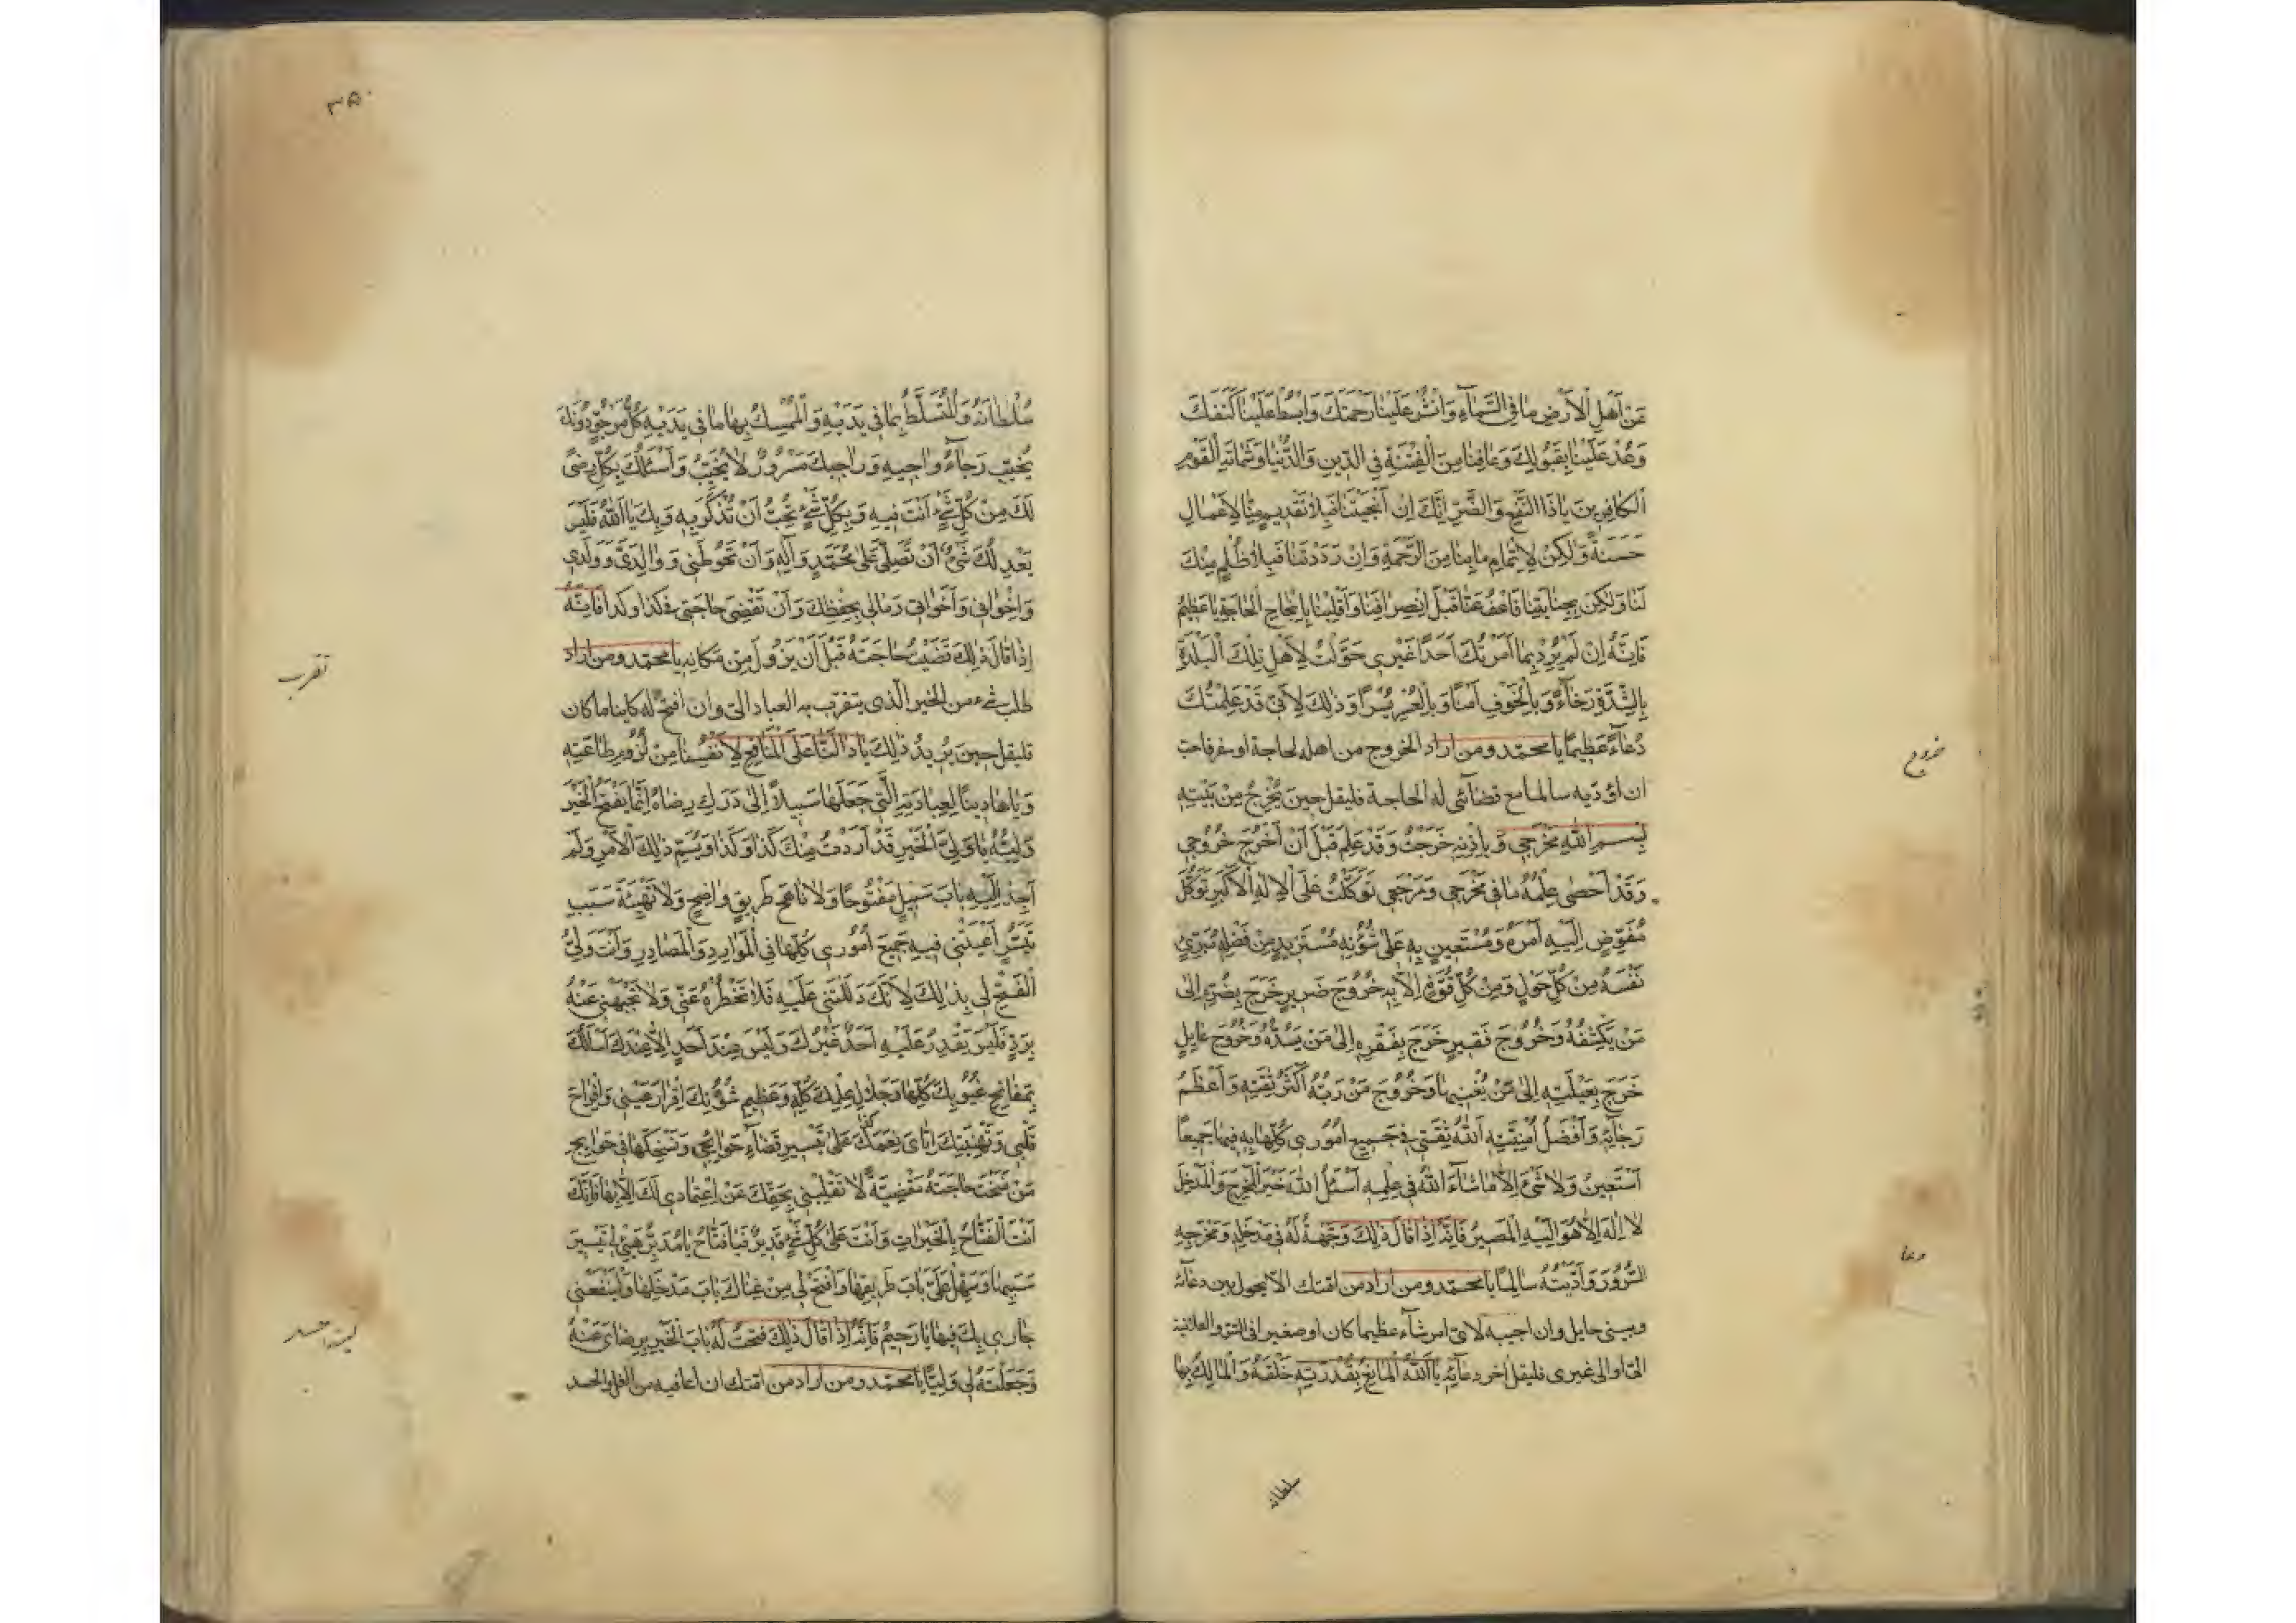 عَنْ اَهْلِ الْاَرْضِ مَا فِي السَّمَآءِ وَانْشُرْ عَلَيْنَا رَحْمَتَكَ وَابْسُطْ عَلَيْنَا كَنَفَكَ
وَعُدْ عَلَيْنَا بِقَبُولِكَ وَعَافِنَا مِنَ الْفِتْنَةِ فِي الدِّينِ وَالدُّنْيَا وَشَمَاتَةِ الْقَوْمِ
الْكَافِرِينَ يَا ذَا النَّفْعِ وَالضُّرِّ اِنَّكَ اِنْ اَنْجَيْتَنَا فَبِلَا تَقْدِيمٍ مِنَّا لِاَعْمَالٍ
حَسَنَةٍ وَلٰكِنْ لِاِتْمَامِ مَا بِنَا مِنَ الرَّحْمَةِ وَاِنْ رَدَدْتَنَا فَبِلَا ظُلْمٍ مِنْكَ
لَنَا وَلٰكِنْ بِجِنَايَتِنَا فَاعْفُ عَنَّا قَبْلَ اِنْصِرَافِنَا وَاَقْلِبْنَا بِاِنْجَاحِ الْحَاجَةِ يَا عَظِيمُ
فَاِنَّهُ اِنْ لَمْ يُرِدْ بِمَا اَمَرْتُكَ اَحَدًا غَيْرِي حَوَّلْتُ لِاَهْلِ تِلْكَ الْبَلْدَةِ
بِالشِّدَّةِ رَخَآءً وَبِالْخَوْفِ اَمْنًا وَبِالْعُسْرِ يُسْرًا وَذٰلِكَ لِاَنِّي قَدْ عَلَّمْتُكَ
دُعَآءً عَظِيمًا يا محمّد ومن اراد الخروج من اهله لحاجة او سفر فاحبّ
ان اؤدّيه سالما مع قضآئى له الحاجة فليقل حين يَخْرُجُ مِنْ بَيْتِهِ
بِسْمِ اللّٰهِ مَخْرَجِي وَبِاِذْنِهِ خَرَجْتُ وَقَدْ عَلِمَ قَبْلَ اَنْ اَخْرُجَ خُرُوجِي
وَقَدْ اَحْصٰى عِلْمُهُ مَا فِي مَخْرَجِي وَمَرْجَعِي تَوَكَّلْتُ عَلَى الْاِلٰهِ الْاَكْبَرِ تَوَكُّلَ
مُفَوِّضٍ اِلَيْهِ اَمْرَهُ وَمُسْتَعِينٍ بِهِ عَلٰى شُؤُنِهِ مُسْتَزِيدٍ مِنْ فَضْلِهِ مُبَرِّئٍ
نَفْسَهُ مِنْ كُلِّ حَوْلٍ وَمِنْ كُلِّ قُوَّةٍ اِلَّا بِهِ خُرُوجَ ضَرِيرٍ خَرَجَ بِضُرِّهِ اِلٰى
مَنْ يَكْشِفُهُ وَخُرُوجَ فَقِيرٍ خَرَجَ بِفَقْرِهِ اِلٰى مَنْ يَسُدُّهُ وَخُرُوجَ عَايِلٍ
خَرَجَ بِعَيْلَتِهِ اِلٰى مَنْ يُغْنِيهَا وَخُرُوجَ مَنْ رَبُّهُ اَكْثَرُ ثِقَتِهِ وَاَعْظَمُ
رَجَآئِهِ وَاَفْضَلُ اُمْنِيَّتِهِ اَللّٰهُ ثِقَتِي فِي جَمِيعِ اُمُورِي كُلِّهَا بِهِ فِيهَا جَمِيعًا
اَسْتَعِينُ وَلَا شَيْءَ اِلَّا مَا شَآءَ اللّٰهُ فِي عِلْمِهِ اَسْئَلُ اللّٰهَ خَيْرَ الْمَخْرَجِ وَالْمَدْخَلِ
لَا اِلٰهَ اِلَّا هُوَ اِلَيْهِ الْمَصِيرُ فَاِنَّهُ اِذَا قَالَ ذٰلِكَ وَجَّهْتُ لَهُ فِي مَدْخَلِهِ وَمَخْرَجِهِ
السُّرُورَ وَاَدَّيْتُهُ سَالِمًا يا محمّد ومن اراد من امّتك الّا يحول بين دعآئه
وبيني حايل وان اجيبه لاىّ امر شآء عظيما كان او صغيرا فى السّرّ والعلانية
الىّ او الى غيرى فليقل آخر دعآئه يَا اَللّٰهُ الْمَانِعُ بِقُدْرَتِهِ خَلْقَهُ وَالْمَالِكُ بِهَا
سلطانه
خروج
دعا
٣٥٠
سُلْطَانَهُ وَالْمُتَسَلِّطُ بِمَا فِي يَدَيْهِ وَالْمُمْسِكُ بِهَا مَا فِي يَدَيْهِ كُلُّ مَرْجُوٍّ دُونَكَ
يُخَيِّبُ رَجَآءَ رَاجِيهِ وَرَاجِيكَ مَسْرُورٌ لَا يُخَيَّبُ وَاَسْئَلُكَ بِكُلِّ رِضًى
لَكَ مِنْ كُلِّ شَيْءٍ اَنْتَ فِيهِ وَبِكُلِّ شَيْءٍ تُحِبُّ اَنْ تُذْكَرَ بِهِ وَبِكَ يَا اَللّٰهُ فَلَيْسَ
يَعْدِلُكَ شَيْءٌ اَنْ تُصَلِّيَ عَلٰى مُحَمَّدٍ وَآلِهِ وَاَنْ تَحُوطَنِي وَوَالِدَيَّ وَوُلْدِي
وَاِخْوَانِي وَاَخَوَاتِي وَمَالِي بِحِفْظِكَ وَاَنْ تَقْضِيَ حَاجَتِي فِي كذا وكذا فَاِنَّهُ
اِذَا قَالَ ذٰلِكَ قَضَيْتُ حَاجَتَهُ قَبْلَ اَنْ يَزُولَ مِنْ مَكَانِهِ يا محمّد ومن اراد
طلب شىء من الخير الّذى يتقرّب به العباد الىّ وان افتح له كاينا ما كان
فليقل حِينَ يُرِيدُ ذٰلِكَ يَا دَالَّنَا عَلَى الْمَنَافِعِ لِاَنْفُسِنَا مِنْ لُزُومِ طَاعَتِهِ
وَيَا هَادِينَا لِعِبَادَتِهِ الَّتِي جَعَلَهَا سَبِيلًا اِلٰى دَرَكِ رِضَاهُ اِنَّمَا يَفْتَحُ الْخَيْرَ
وَلِيُّهُ يَا وَلِيَّ الْخَيْرِ قَدْ اَرَدْتُ مِنْكَ كَذَا وَكَذَا وَيُسَمّ ذٰلِكَ الْاَمْرِ وَلَمْ
اَجِدْ اِلَيْهِ بَابَ سَبِيلٍ مَفْتُوحًا وَلَا نَاهِجَ طَرِيقٍ وَاضِحٍ وَلَا تَهْيِئَةَ سَبَبٍ
تَيَسَّرُ اَعْيَتْنِي فِيهِ جَمِيعُ اُمُورِي كُلِّهَا فِي الْمَوَارِدِ وَالْمَصَادِرِ وَاَنْتَ وَلِيُّ
الْفَتْحِ لِي بِذٰلِكَ لِاَنَّكَ دَلَلْتَنِي عَلَيْهِ فَلَا تَحْظُرْهُ عَنِّي وَلَا تَجْبَهْنِي عَنْهُ
بِرَدٍّ فَلَيْسَ يَقْدِرُ عَلَيْهِ اَحَدٌ غَيْرُكَ وَلَيْسَ عِنْدَ اَحَدٍ اِلَّا عِنْدَكَ اَسْاَلُكَ
بِمَفَاتِحِ غُيُوبِكَ كُلِّهَا وَجَلَالِ عِلْمِكَ كُلِّهِ وَعَظِيمِ شُؤُنِكَ اِقْرَارَ عَيْنِي وَاِفْرَاحَ
قَلْبِي وَتَهْنِيَتِكَ اِيَّايَ نِعَمَكَ عَلَيَّ بِتَيْسِيرِ قَضَآءِ حَوَائِجِي وَنَسْخِكَهَا فِي حَوَائِجِ
مَنْ نَسَخْتَ حَاجَتَهُ مَقْضِيَّةً لَا تَقْلِبْنِي بِحَقِّكَ عَنْ اِعْتِمَادِي لَكَ اِلَّا بِهَا فَاِنَّكَ
اَنْتَ الْفَتَّاحُ بِالْخَيْرَاتِ وَاَنْتَ عَلٰى كُلِّ شَيْءٍ قَدِيرٌ فَيَا فَتَّاحُ يَا مُدَبِّرُ هَيِّئْ لِي تَيْسِيرَ
سَبَبِهَا وَسَهِّلْ عَلَيَّ بَابَ طَرِيقِهَا وَافْتَحْ لِي مِنْ غِنَاكَ بَابَ مَدْخَلِهَا وَلْيَنْفَعْنِي
جَارِي بِكَ فِيهَا يَا رَحِيمُ فَاِنَّهُ اِذَا قَالَ ذٰلِكَ فَتَحْتُ لَهُ بَابَ الْخَيْرِ بِرِضَايَ عَنْهُ
وَجَعَلْتُهُ لِي وَلِيًّا يا محمّد ومن اراد من امّتك ان اعافيه من الغلّ والحسد
تقرب